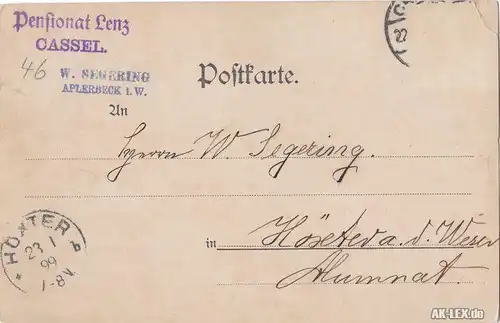 Pensionat Lenz
CASSEL.
46
W. SEGERING
APLERBECK i. W.
Postkarte.
An
Herrn W. Segering.
in Höxter a. d. Weser
Alumnat.
HÖXTER
23 1
99
7-8V
AK-LEX.de